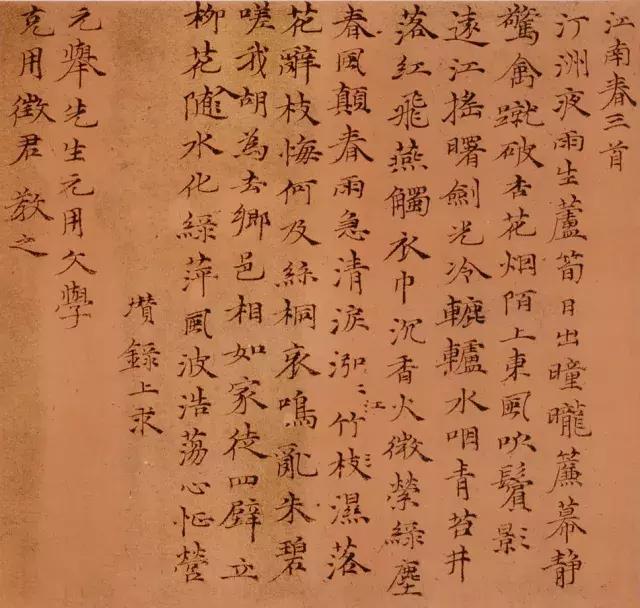 江南春三首
汀洲夜雨生蘆笋日出曈曨簾幕静
驚禽蹴破杏花烟陌上東風吹鬢影
遠江揺曙劍光冷轆轤水咽青苔井
落紅飛燕觸衣巾沉香火微縈綠塵
春風顛春雨急清淚泓〻江竹枝〻濕落
花辭枝悔何及絲桐哀鳴亂朱碧
嗟我胡為去鄉邑相如家徒四壁立
柳花隨水化綠萍風波浩蕩心怔營
瓚錄上求
元舉先生元用文學
克用徵君教之